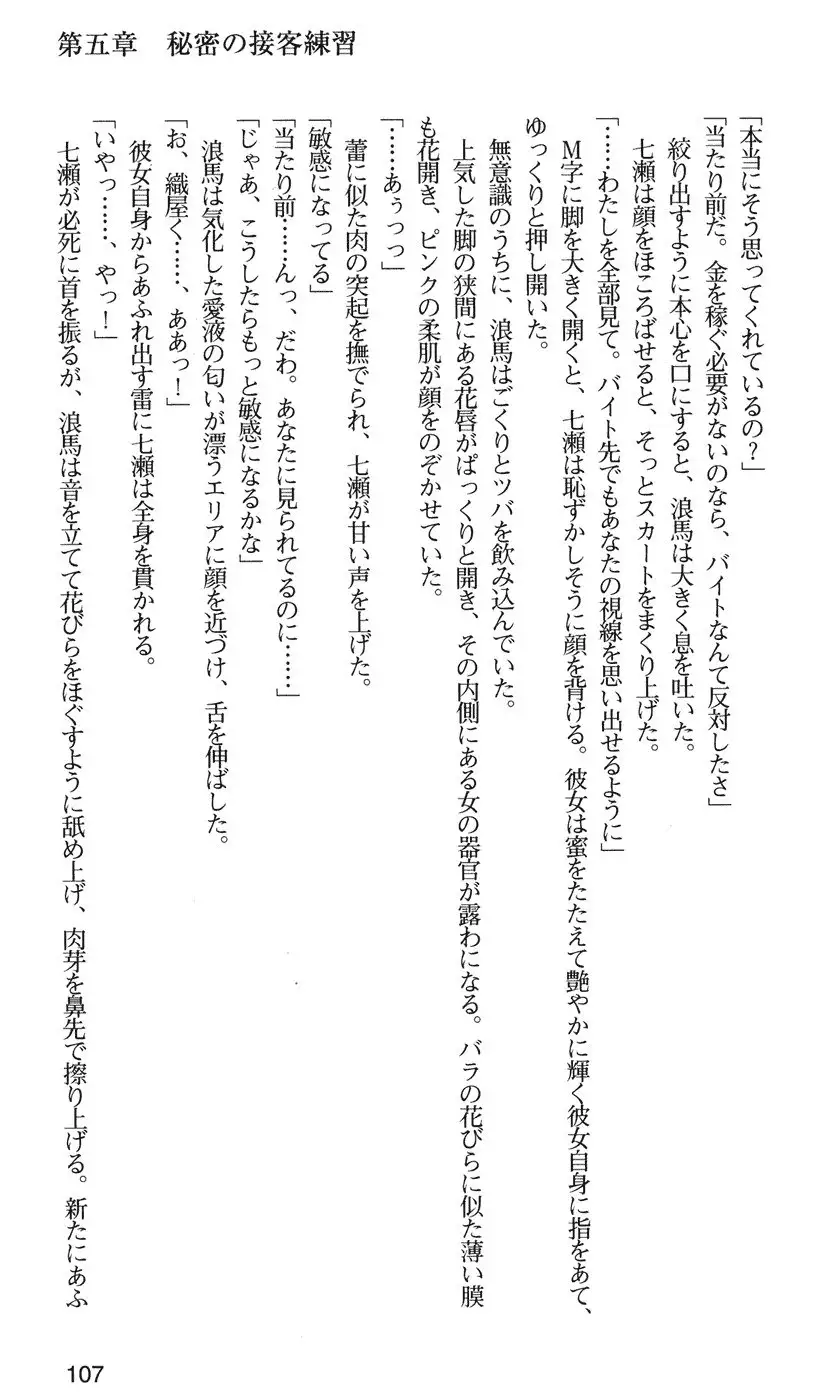 第五章　秘密の接客練習
「本当にそう思ってくれているの？」
「当たり前だ。金を稼ぐ必要がないのなら、バイトなんて反対したさ」
絞り出すように本心を口にすると、浪馬は大きく息を吐いた。
七瀬は顔をほころばせると、そっとスカートをまくり上げた。
「……わたしを全部見て。バイト先でもあなたの視線を思い出せるように」
Ｍ字に脚を大きく開くと、七瀬は恥ずかしそうに顔を背ける。彼女は蜜をたたえて艶やかに輝く彼女自身に指をあて、
ゆっくりと押し開いた。
無意識のうちに、浪馬はごくりとツバを飲み込んでいた。
上気した脚の狭間にある花唇がぱっくりと開き、その内側にある女の器官が露わになる。バラの花びらに似た薄い膜
も花開き、ピンクの柔肌が顔をのぞかせていた。
「……あぅっっ」
蕾に似た肉の突起を撫でられ、七瀬が甘い声を上げた。
「敏感になってる」
「当たり前……んっ、だわ。あなたに見られてるのに……」
「じゃあ、こうしたらもっと敏感になるかな」
浪馬は気化した愛液の匂いが漂うエリアに顔を近づけ、舌を伸ばした。
「お、織屋く……、ああっ！」
彼女自身からあふれ出す雷に七瀬は全身を貫かれる。
「いやっ……、やっ！」
七瀬が必死に首を振るが、浪馬は音を立てて花びらをほぐすように舐め上げ、肉芽を鼻先で擦り上げる。新たにあふ
107